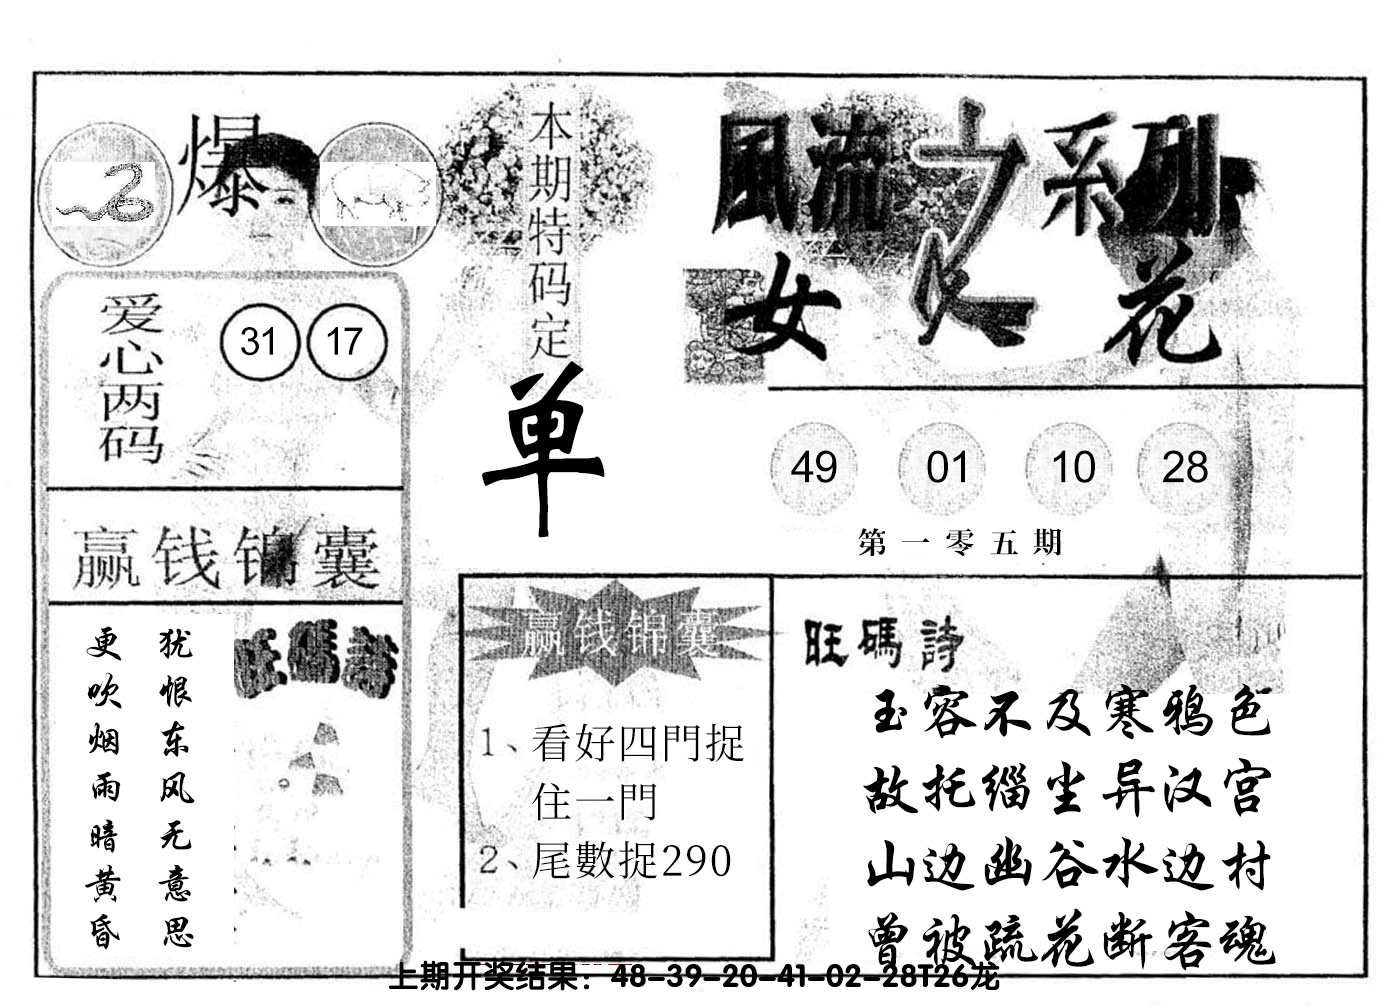 爆
本期特码定
单
風流之系列
女人花
爱心两码
31 17
49 01 10 28
第一零五期
赢钱锦囊
旺碼詩
犹恨东风无意思
更吹烟雨暗黄昏
赢钱锦囊
1、看好四門捉
住一門
2、尾數捉290
旺碼詩
玉容不及寒鸦色
故托缁尘异汉宫
山边幽谷水边村
曾被疏花断客魂
上期开奖结果：48-39-20-41-02-28T26龙